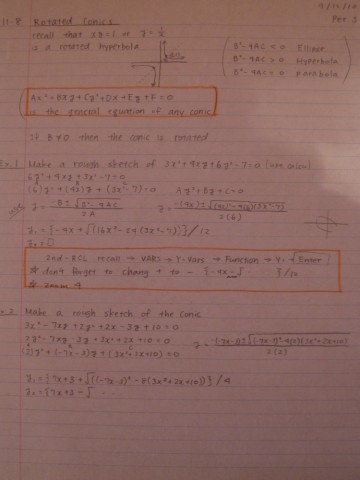 9/14/10
Per 3
11.8 Rotated Conics
recall that xy=1 or y=1/x
is a rotated hyperbola
B²-4AC < 0 Ellipse
B²-4AC > 0 Hyperbola
B²-4AC = 0 parabola
Ax²+Bxy+Cy²+Dx+Ey+F=0
is the general equation of any conic
If B≠0 then the conic is rotated
Ex.1 Make a rough sketch of 3x²+4xy+6y²-7=0
6y²+4xy+3x²-7=0
(6)y²+(4x)y+(3x²-7)=0 Ay²+By+C=0
y = -B±√B²-4AC / 2A y = -(4x)±√(4x)²-4(6)(3x²-7) / 2(6)
y₁ = {-4x+√(16x²-24(3x²-7))}/12
y₂ =
2nd-RCL recall → VARS → Y-Vars → Function → Y₁ → Enter
* don't forget to change + to - {-4x-√ }/12
* zoom 4
Ex.2 Make a rough sketch of the conic
3x²-7xy+2y²+2x-3y+10=0
2y²-7xy-3y+3x²+2x+10=0
(2)y²+(-7x-3)y+(3x²+2x+10)=0
y = -(-7x-3)±√(-7x-3)²-4(2)(3x²+2x+10) / 2(2)
y₁ = {7x+3+√((-7x-3)²-8(3x²+2x+10))}/4
y₂ = {7x+3-√ ...